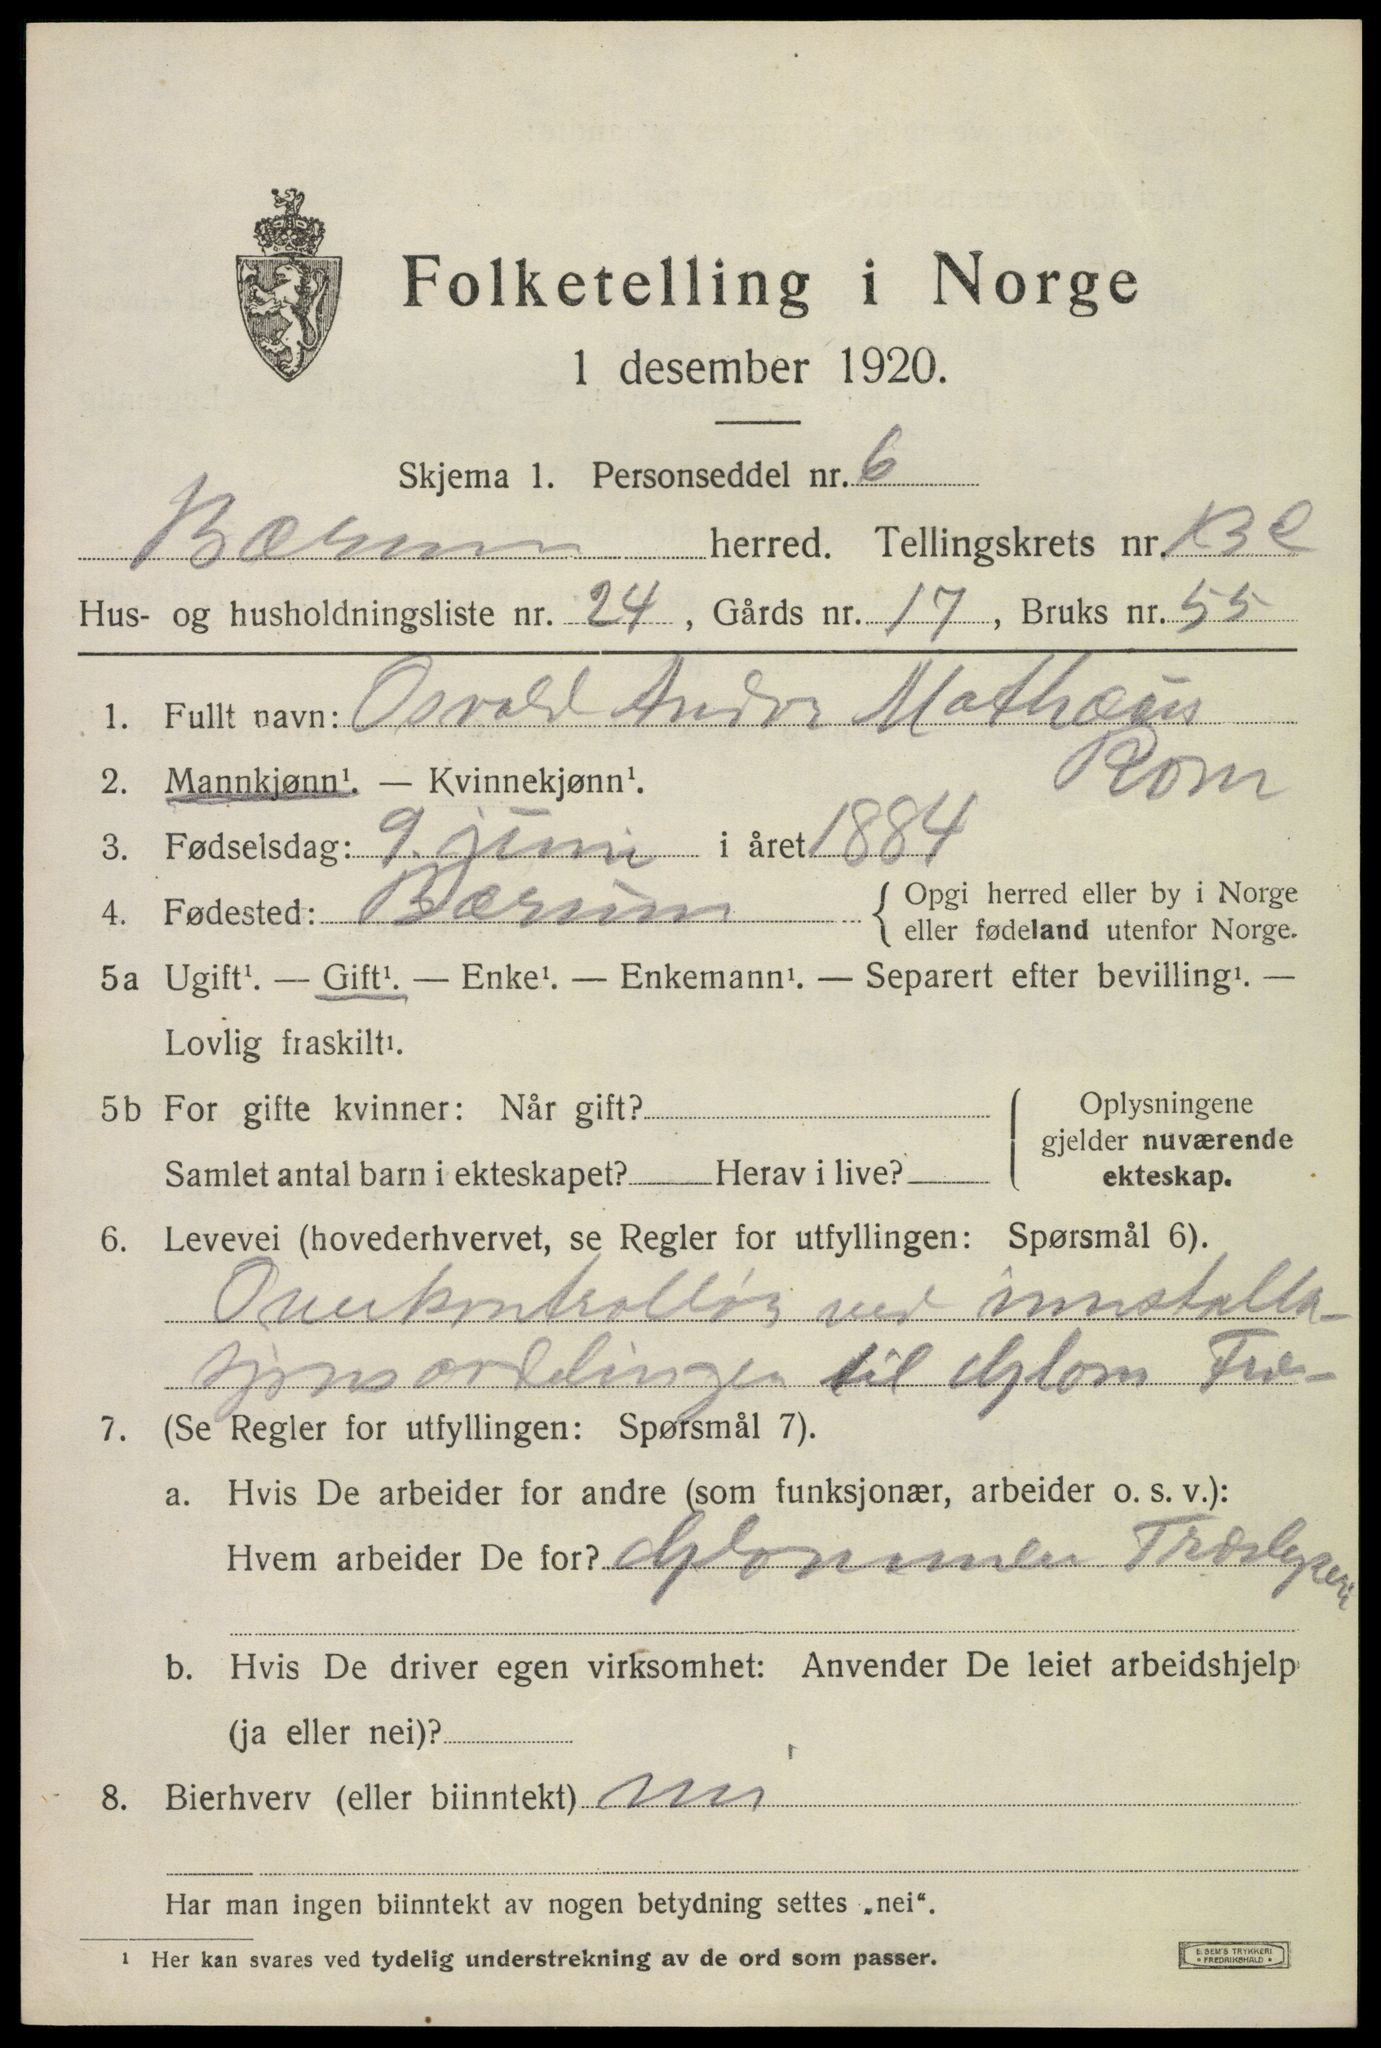 Folketelling i Norge
1 desember 1920.
Skjema 1. Personseddel nr. 6
Bærum herred. Tellingskrets nr.
Hus- og husholdningsliste nr. 24, Gårds nr. 17, Bruks nr. 55
1. Fullt navn: Osvald Andor Mathæus
Rom
2. Mannkjønn¹. — Kvinnekjønn¹.
3. Fødselsdag: 9. juni i året 1884
4. Fødested: Bærum { Opgi herred eller by i Norge
eller fødeland utenfor Norge.
5a Ugift¹. — Gift¹. — Enke¹. — Enkemann¹. — Separert efter bevilling¹. —
Lovlig fraskilt¹.
5b For gifte kvinner: Når gift? ( Oplysningene
gjelder nuværende
Samlet antal barn i ekteskapet? Herav i live? ekteskap.
6. Levevei (hovederhvervet, se Regler for utfyllingen: Spørsmål 6).
Overkontrollør ved innstalla-
sjonsavdelingen til Glom Træ-
7. (Se Regler for utfyllingen: Spørsmål 7).
a. Hvis De arbeider for andre (som funksjonær, arbeider o. s. v.):
Hvem arbeider De for? Glommen Træsliperi
b. Hvis De driver egen virksomhet: Anvender De leiet arbeidshjelp
(ja eller nei)?
8. Bierhverv (eller biinntekt) nei
Har man ingen biinntekt av nogen betydning settes „nei“.
¹ Her kan svares ved tydelig understrekning av de ord som passer.
E. SEM'S TRYKKERI
• FREDRIKSHALD •